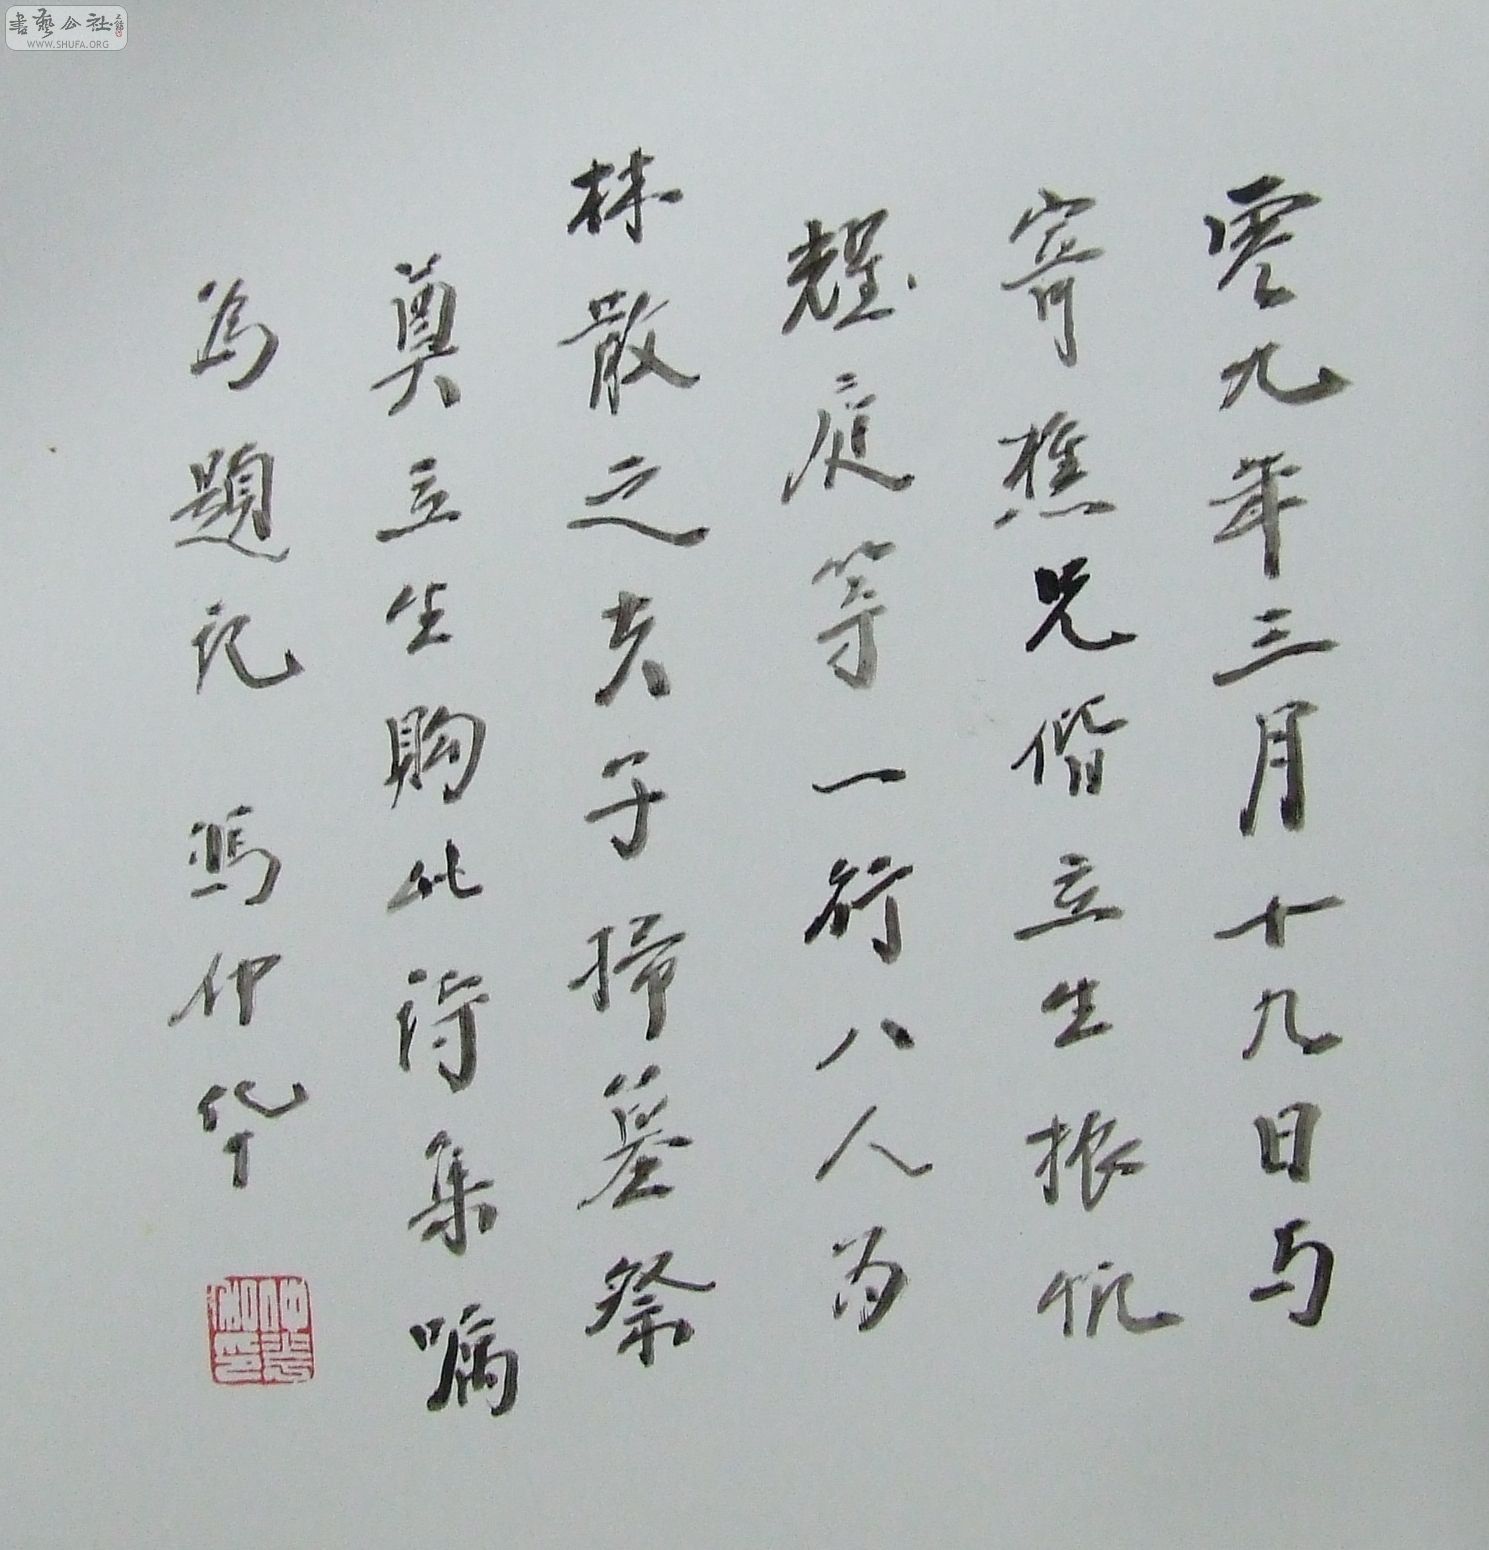 零九年三月十九日与
寄樵兄偕立生振
耀庭等一行八人为
林散之夫子掃墓祭
奠立生购此诗集嘱
为题记 冯仲华
書藝公社
WWW.SHUFA.ORG